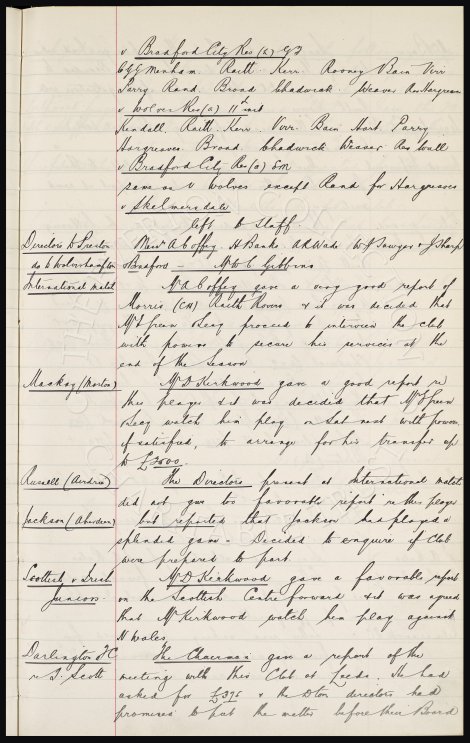 v Bradford City Res (h) G.D
C.E.G Menham Raitt Kerr Rooney Bain Virr
Parry Rand Broad Chadwick Weaver Res Hargreaves
v Wolves Res (a) 11th inst
Kendall. Raitt. Kerr. Virr. Bain Hart Parry.
Hargreaves Broad. Chadwick Weaver Res Wall
v Bradford City Res (a) EM
same as v Wolves except Rand for Hargreaves
v Skelmersdale
left to Staff.
Directors to Preston Messrs A Coffey H Banks A R Wade W F Sawyer & J Sharp
do to Wolverhampton Bradford — Mr W C Gibbins
International match Mr A Coffey gave a very good report of
Morris (CH) Raith Rovers & it was decided that
Mr Green Secy proceed to interview the club
with power to secure his services at the
end of the season.
Mackay (Morton) Mr D Kirkwood gave a good report re
this player & it was decided that Mr Green
Secy watch him play on Sat next with power,
if satisfied, to arrange for his transfer up
to £3000.
Russell (Airdrie) The Directors present at International match
did not give too favorable report re this player
Jackson (Aberdeen) but reported that Jackson had played a
splendid game - Decided to enquire if Club
were prepared to part.
Scottish v Irish Mr D Kirkwood gave a favorable report
Juniors. on the Scottish Centre forward & it was agreed
that Mr Kirkwood watch him play against
N Wales.
Darlington FC The Chairman gave a report of the
re T. Scott meeting with this Club at Leeds. He had
asked for £375 & the Dton directors had
promised to put the matter before their Board